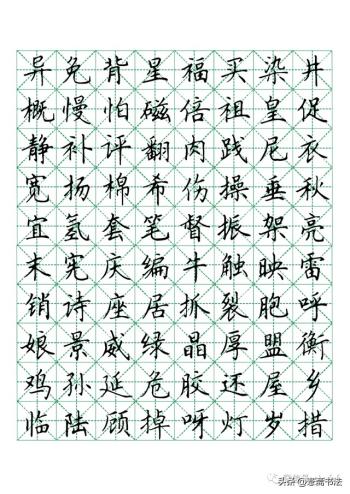 异免背星福买染井
概慢怕磁倍祖皇促
静补评翻肉践尼衣
宽扬棉希伤操垂秋
宜氢套笔督振架亮
末宪庆编牛触映雷
销诗座居抓裂胞呼
娘景威绿晶厚盟衡
鸡孙延危胶还屋乡
临陆顾掉呀灯岁措